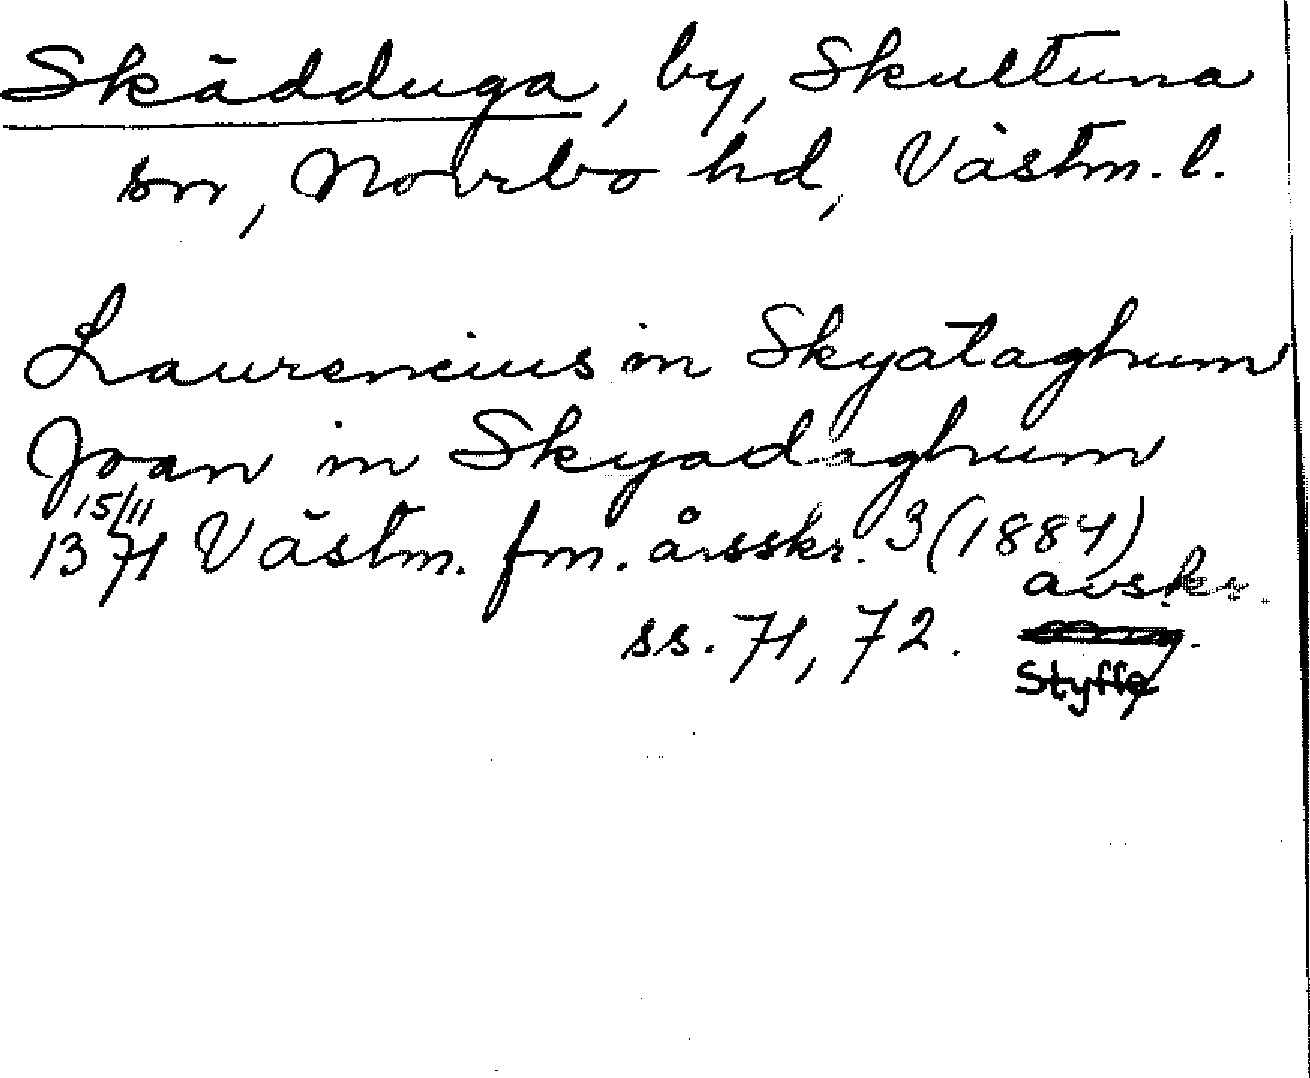 Skädduga, by, Skultuna
sn, Norrbo hd, Västm. l.
Laurencius in Skyataghum
Joan in Skyadaghum
15/11
1371 Västm. fm. årsskr. 3 (1884)
avskr.
ss. 71, 72.
Styffe